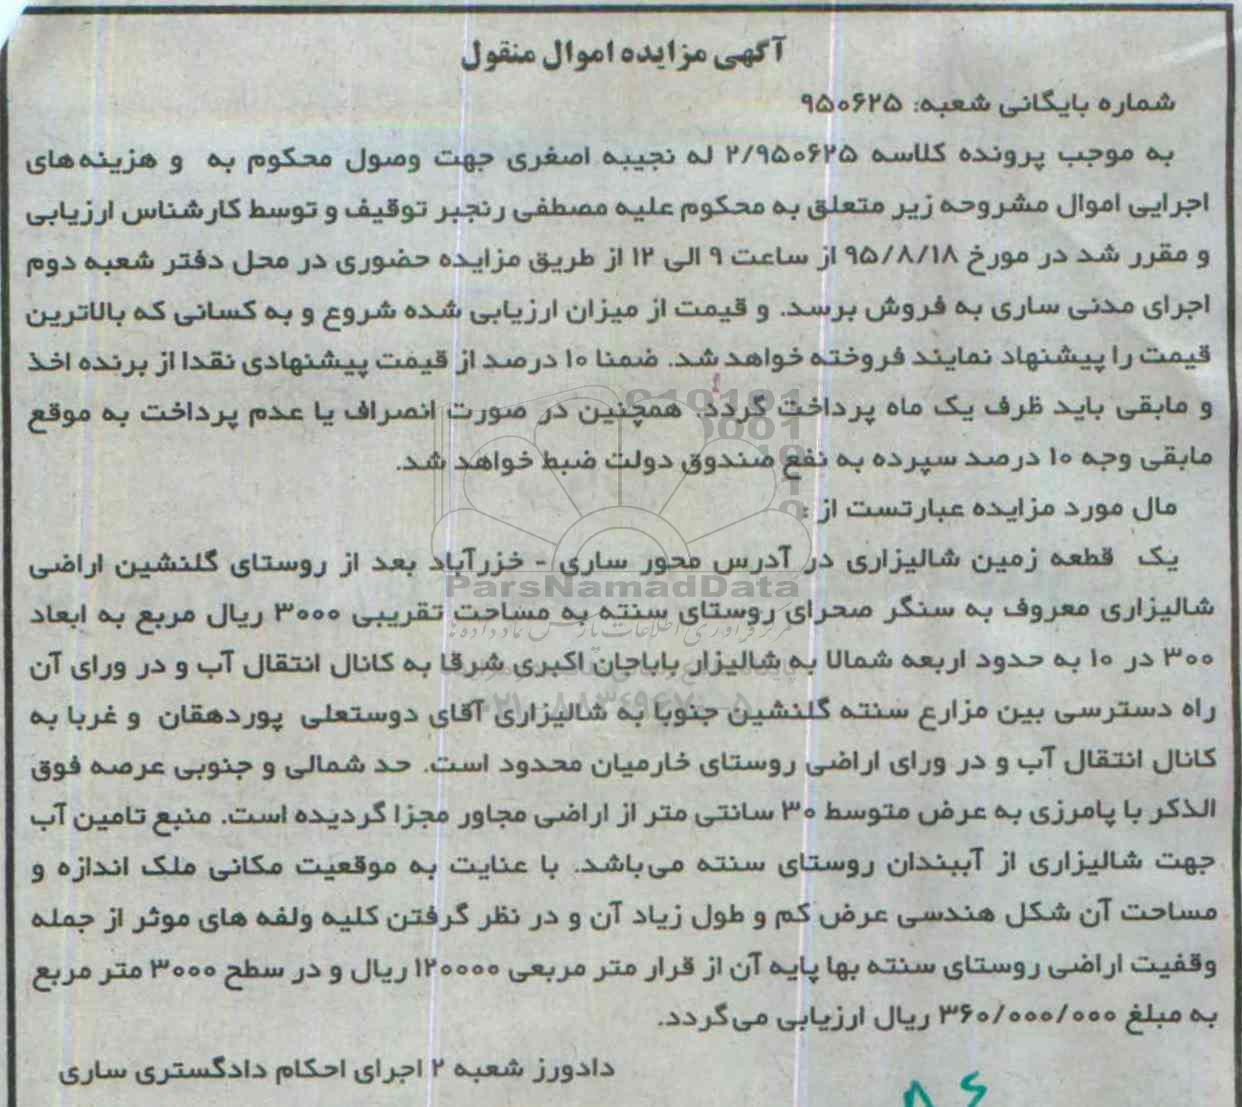 آگهی مزایده اموال منقول
شماره بایگانی شعبه: ۹۵۰۶۲۵
به موجب پرونده کلاسه ۲/۹۵۰۶۲۵ له نجیبه اصغری جهت وصول محکوم به و هزینه‌های
اجرایی اموال مشروحه زیر متعلق به محکوم علیه مصطفی رنجبر توقیف و توسط کارشناس ارزیابی
و مقرر شد در مورخ ۹۵/۸/۱۸ از ساعت ۹ الی ۱۲ از طریق مزایده حضوری در محل دفتر شعبه دوم
اجرای مدنی ساری به فروش برسد. و قیمت از میزان ارزیابی شده شروع و به کسانی که بالاترین
قیمت را پیشنهاد نمایند فروخته خواهد شد. ضمنا ۱۰ درصد از قیمت پیشنهادی نقدا از برنده اخذ
و مابقی باید ظرف یک ماه پرداخت گردد. همچنین در صورت انصراف یا عدم پرداخت به موقع
مابقی وجه ۱۰ درصد سپرده به نفع صندوق دولت ضبط خواهد شد.
مال مورد مزایده عبارتست از :
یک قطعه زمین شالیزاری در آدرس محور ساری - خزرآباد بعد از روستای گلنشین اراضی
ParsNamadData
شالیزاری معروف به سنگر صحرای روستای سنته به مساحت تقریبی ۳۰۰۰ ریال مربع به ابعاد
۳۰۰ در ۱۰ به حدود اربعه شمالا به شالیزار باباجان اکبری شرقا به کانال انتقال آب و در ورای آن
راه دسترسی بین مزارع سنته گلنشین جنوبا به شالیزاری آقای دوستعلی پوردهقان و غربا به
کانال انتقال آب و در ورای اراضی روستای خارمیان محدود است. حد شمالی و جنوبی عرصه فوق
الذکر با پامرزی به عرض متوسط ۳۰ سانتی متر از اراضی مجاور مجزا گردیده است. منبع تامین آب
جهت شالیزاری از آببندان روستای سنته می‌باشد. با عنایت به موقعیت مکانی ملک اندازه و
مساحت آن شکل هندسی عرض کم و طول زیاد آن و در نظر گرفتن کلیه ولفه های موثر از جمله
وقفیت اراضی روستای سنته بها پایه آن از قرار متر مربعی ۱۲۰۰۰۰ ریال و در سطح ۳۰۰۰ متر مربع
به مبلغ ۳۶۰/۰۰۰/۰۰۰ ریال ارزیابی می‌گردد.
دادورز شعبه ۲ اجرای احکام دادگستری ساری